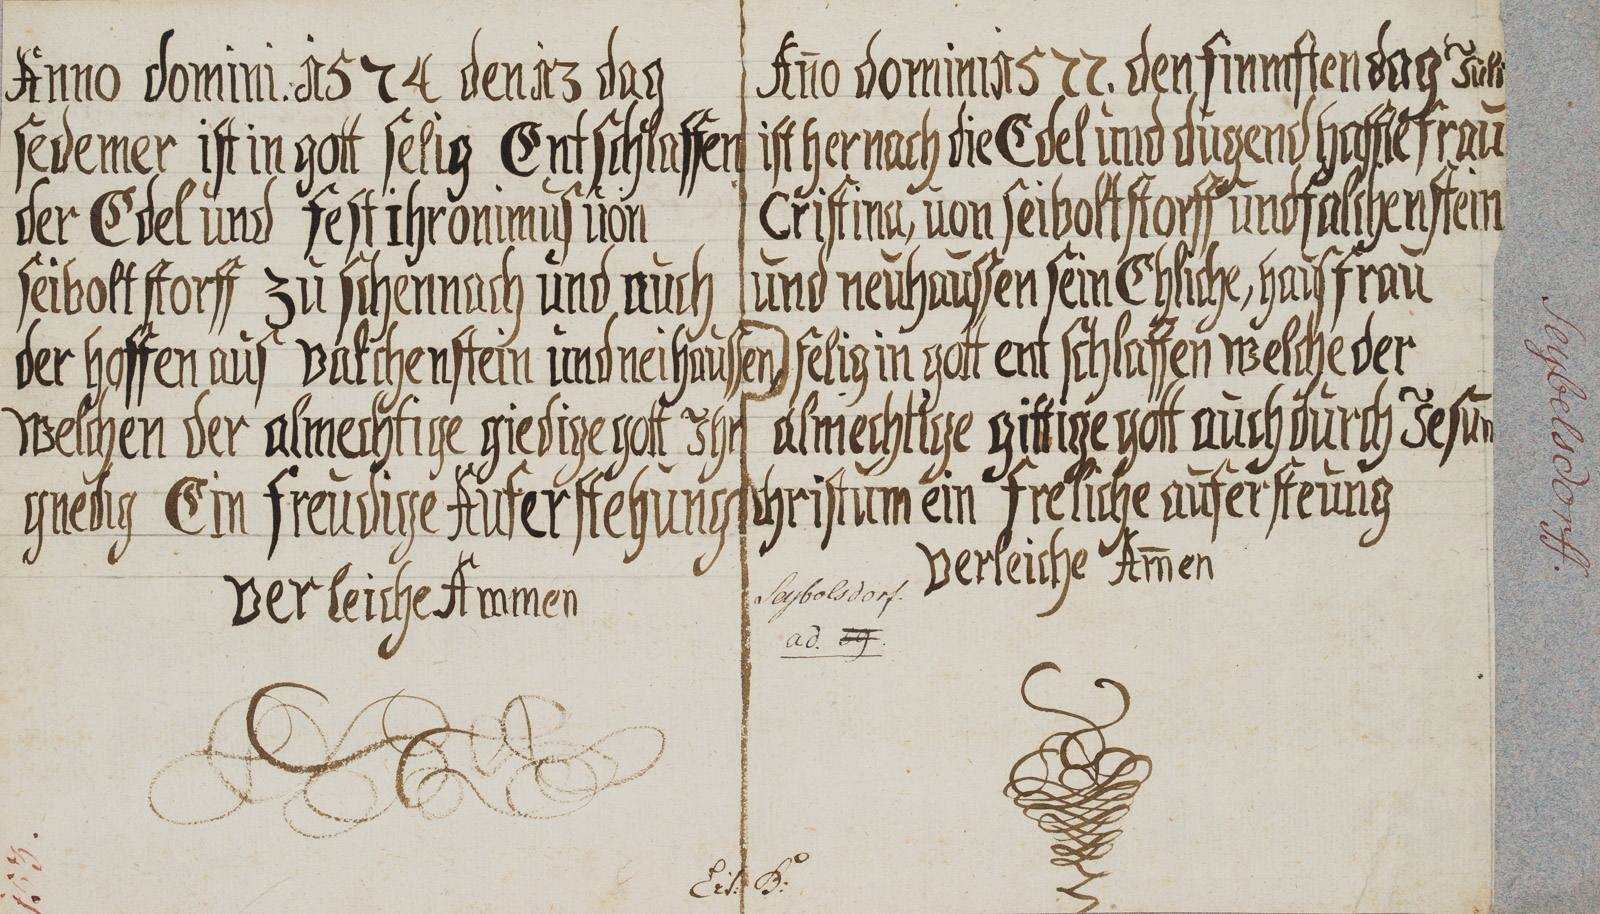 Anno domini. 1574 den 13 dag
sedemer ist in gott selig Entschlaffen
der Edel und fest ihronimus von
seiboltstorff zu schennach und auch
der hoffen aus valchenstein und neihaussen
welchen der almechtige giedige gott Ihr
gnedig Ein freudige Auferstehung
verleiche Ammen
Año domini 1577. den finmften dag Juli
ist hernach die Edel und dugendhaffte frau
Cristina, von seiboltstorff und falchenstein
und neuhaussen sein Ehliche, hausfrau
selig in gott entschlaffen welche der
almechtige gittige gott auch durch Jesum
christum ein freliche aufersteung
verleiche Am̄en
Seybolsdorf.
ad.
Seybelsdorff.